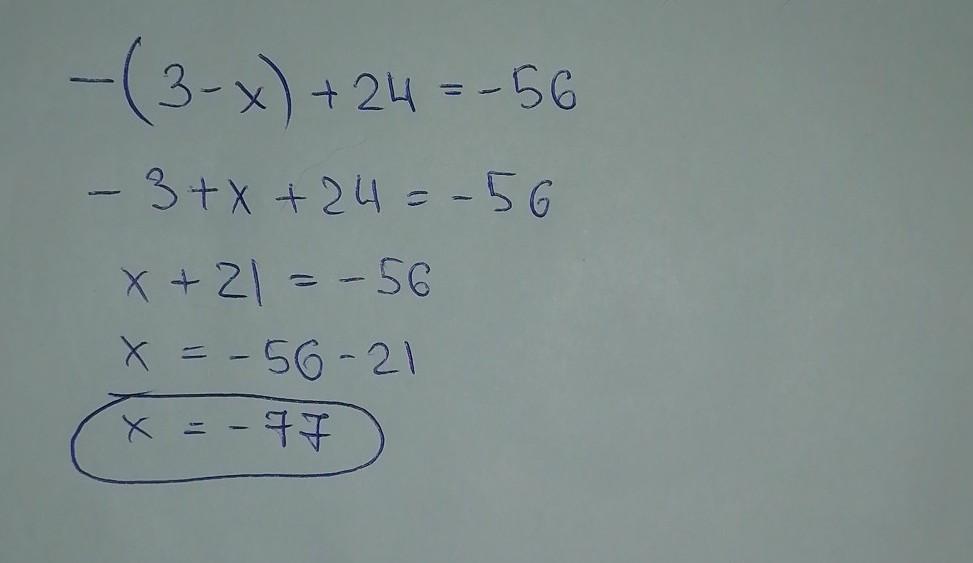 -(3-x)+24=-56
-3+x+24=-56
x+21=-56
x=-56-21
x=-77